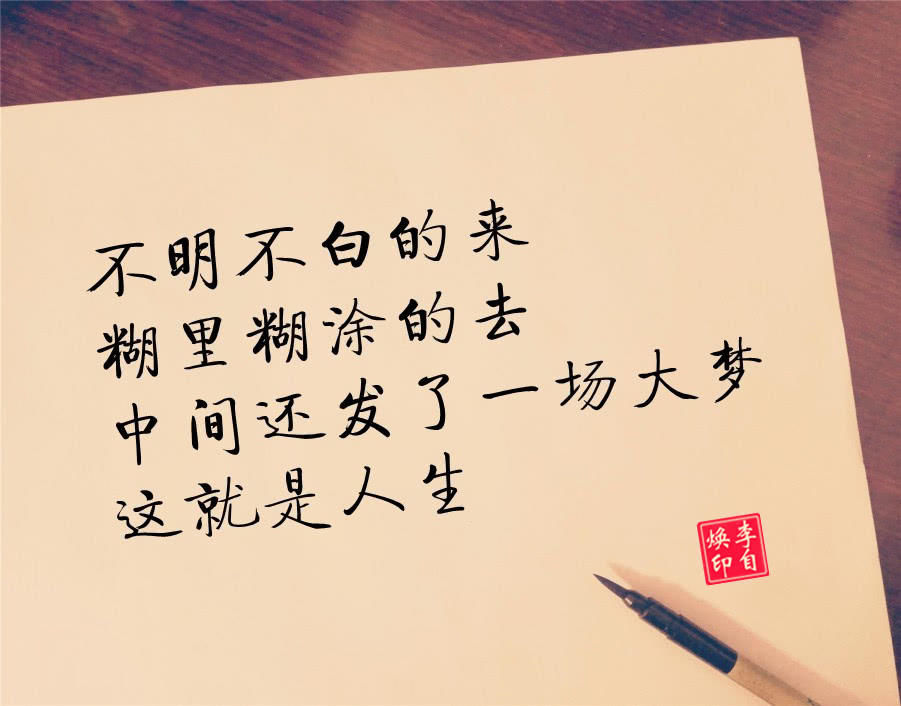 不明不白的来
糊里糊涂的去
中间还发了一场大梦
这就是人生
李自
焕印